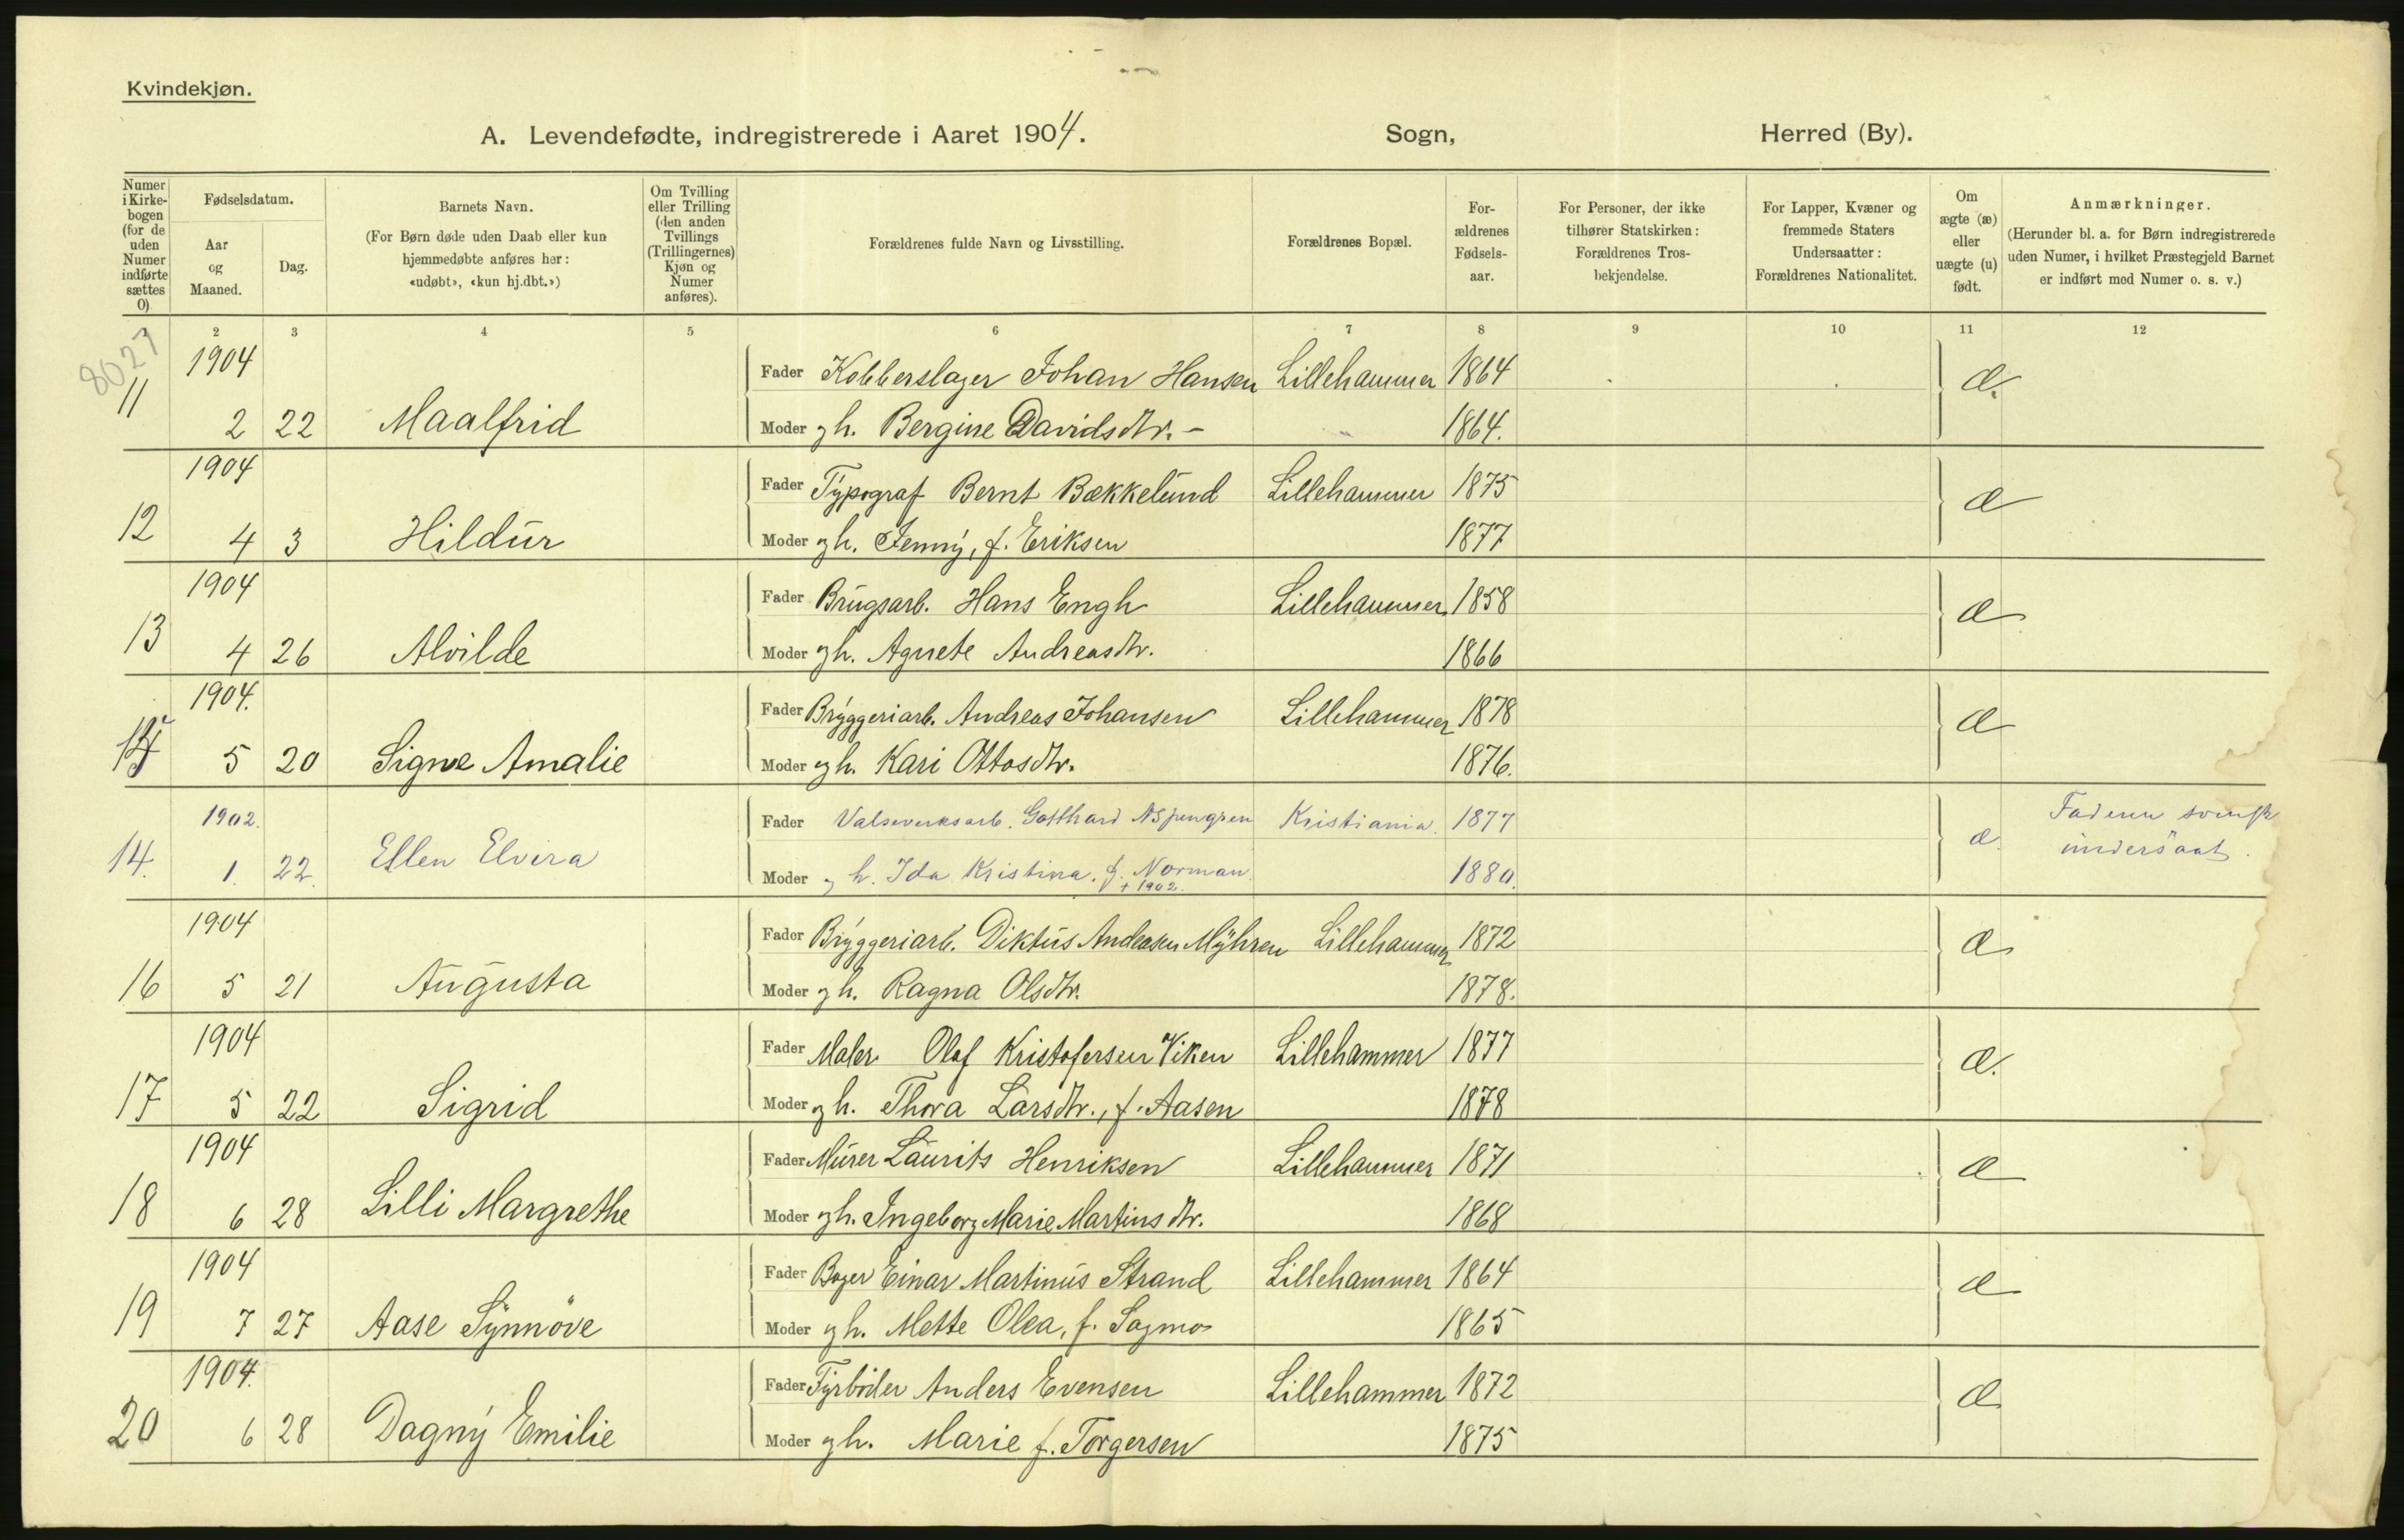 Kvindekjøn.
A. Levendefødte, indregistrerede i Aaret 1904. Sogn, Herred (By).
Numer i Kirkebogen (for de uden Numer indførte sættes 0)
Fødselsdatum.
Aar og Maaned.
Dag.
Barnets Navn.
(For Børn døde uden Daab eller kun hjemmedøbte anføres her: «udøbt», «kun hj.dbt.»)
Om Tvilling eller Trilling (den anden Tvillings (Trillingernes) Kjøn og Numer anføres).
Forældrenes fulde Navn og Livsstilling.
Forældrenes Bopæl.
For-ældrenes Fødsels-aar.
For Personer, der ikke tilhører Statskirken: Forældrenes Tros-bekjendelse.
For Lapper, Kvæner og fremmede Staters Undersaatter: Forældrenes Nationalitet.
Om ægte (æ) eller uægte (u) født.
Anmærkninger.
(Herunder bl. a. for Børn indregistrerede uden Numer, i hvilket Præstegjeld Barnet er indført med Numer o. s. v.)
1 2 3 4 5 6 7 8 9 10 11 12
8027
1904 Fader Kobberslager Johan Hansen Lillehammer 1864 æ.
11 2 22 Maalfrid Moder gh. Bergine Davidsdtr. - 1864.
1904 Fader Typograf Bernt Bækkelund Lillehammer 1875 æ
12 4 3 Hildur Moder gh. Jenny, f. Eriksen 1877
1904 Fader Brugsarb. Hans Engh Lillehammer 1858 æ
13 4 26 Alvilde Moder gh. Agnete Andreasdtr. 1866
1904. Fader Bryggeriarb. Andreas Johansen Lillehammer 1878 æ
5 20 Signe Amalie Moder gh. Kari Ottosdtr. 1876.
1902. Fader Valseverksarb. Gotthard Aspengren Kristiania. 1877 æ. Faderen svensk
14. 1. 22. Ellen Elvira Moder gh. Ida Kristina. f. Norman. 1880. undersaat.
+ 1902.
1904 Fader Bryggeriarb. Diktus Andersen Myhren Lillehammer 1872 æ
16 5 21 Augusta Moder gh. Ragna Olsdtr. 1878.
1904 Fader Maler Olaf Kristofersen Viken Lillehammer 1877 æ.
17 5 22 Sigrid Moder gh. Thora Larsdtr., f. Aasen 1878
1904 Fader Murer Laurits Henriksen Lillehammer 1871 æ
18 6 28 Lilli Margrethe Moder gh. Ingeborg Marie Martinsdtr. 1868
1904 Fader Bager Einar Martinus Strand Lillehammer 1864 æ
19 7 27 Aase Synnöve Moder gh. Mette Olea, f. Sagmo 1865
1904. Fader Fyrböder Anders Evensen Lillehammer 1872 æ
20 6 28 Dagny Emilie Moder gh. Marie f. Torgersen 1875